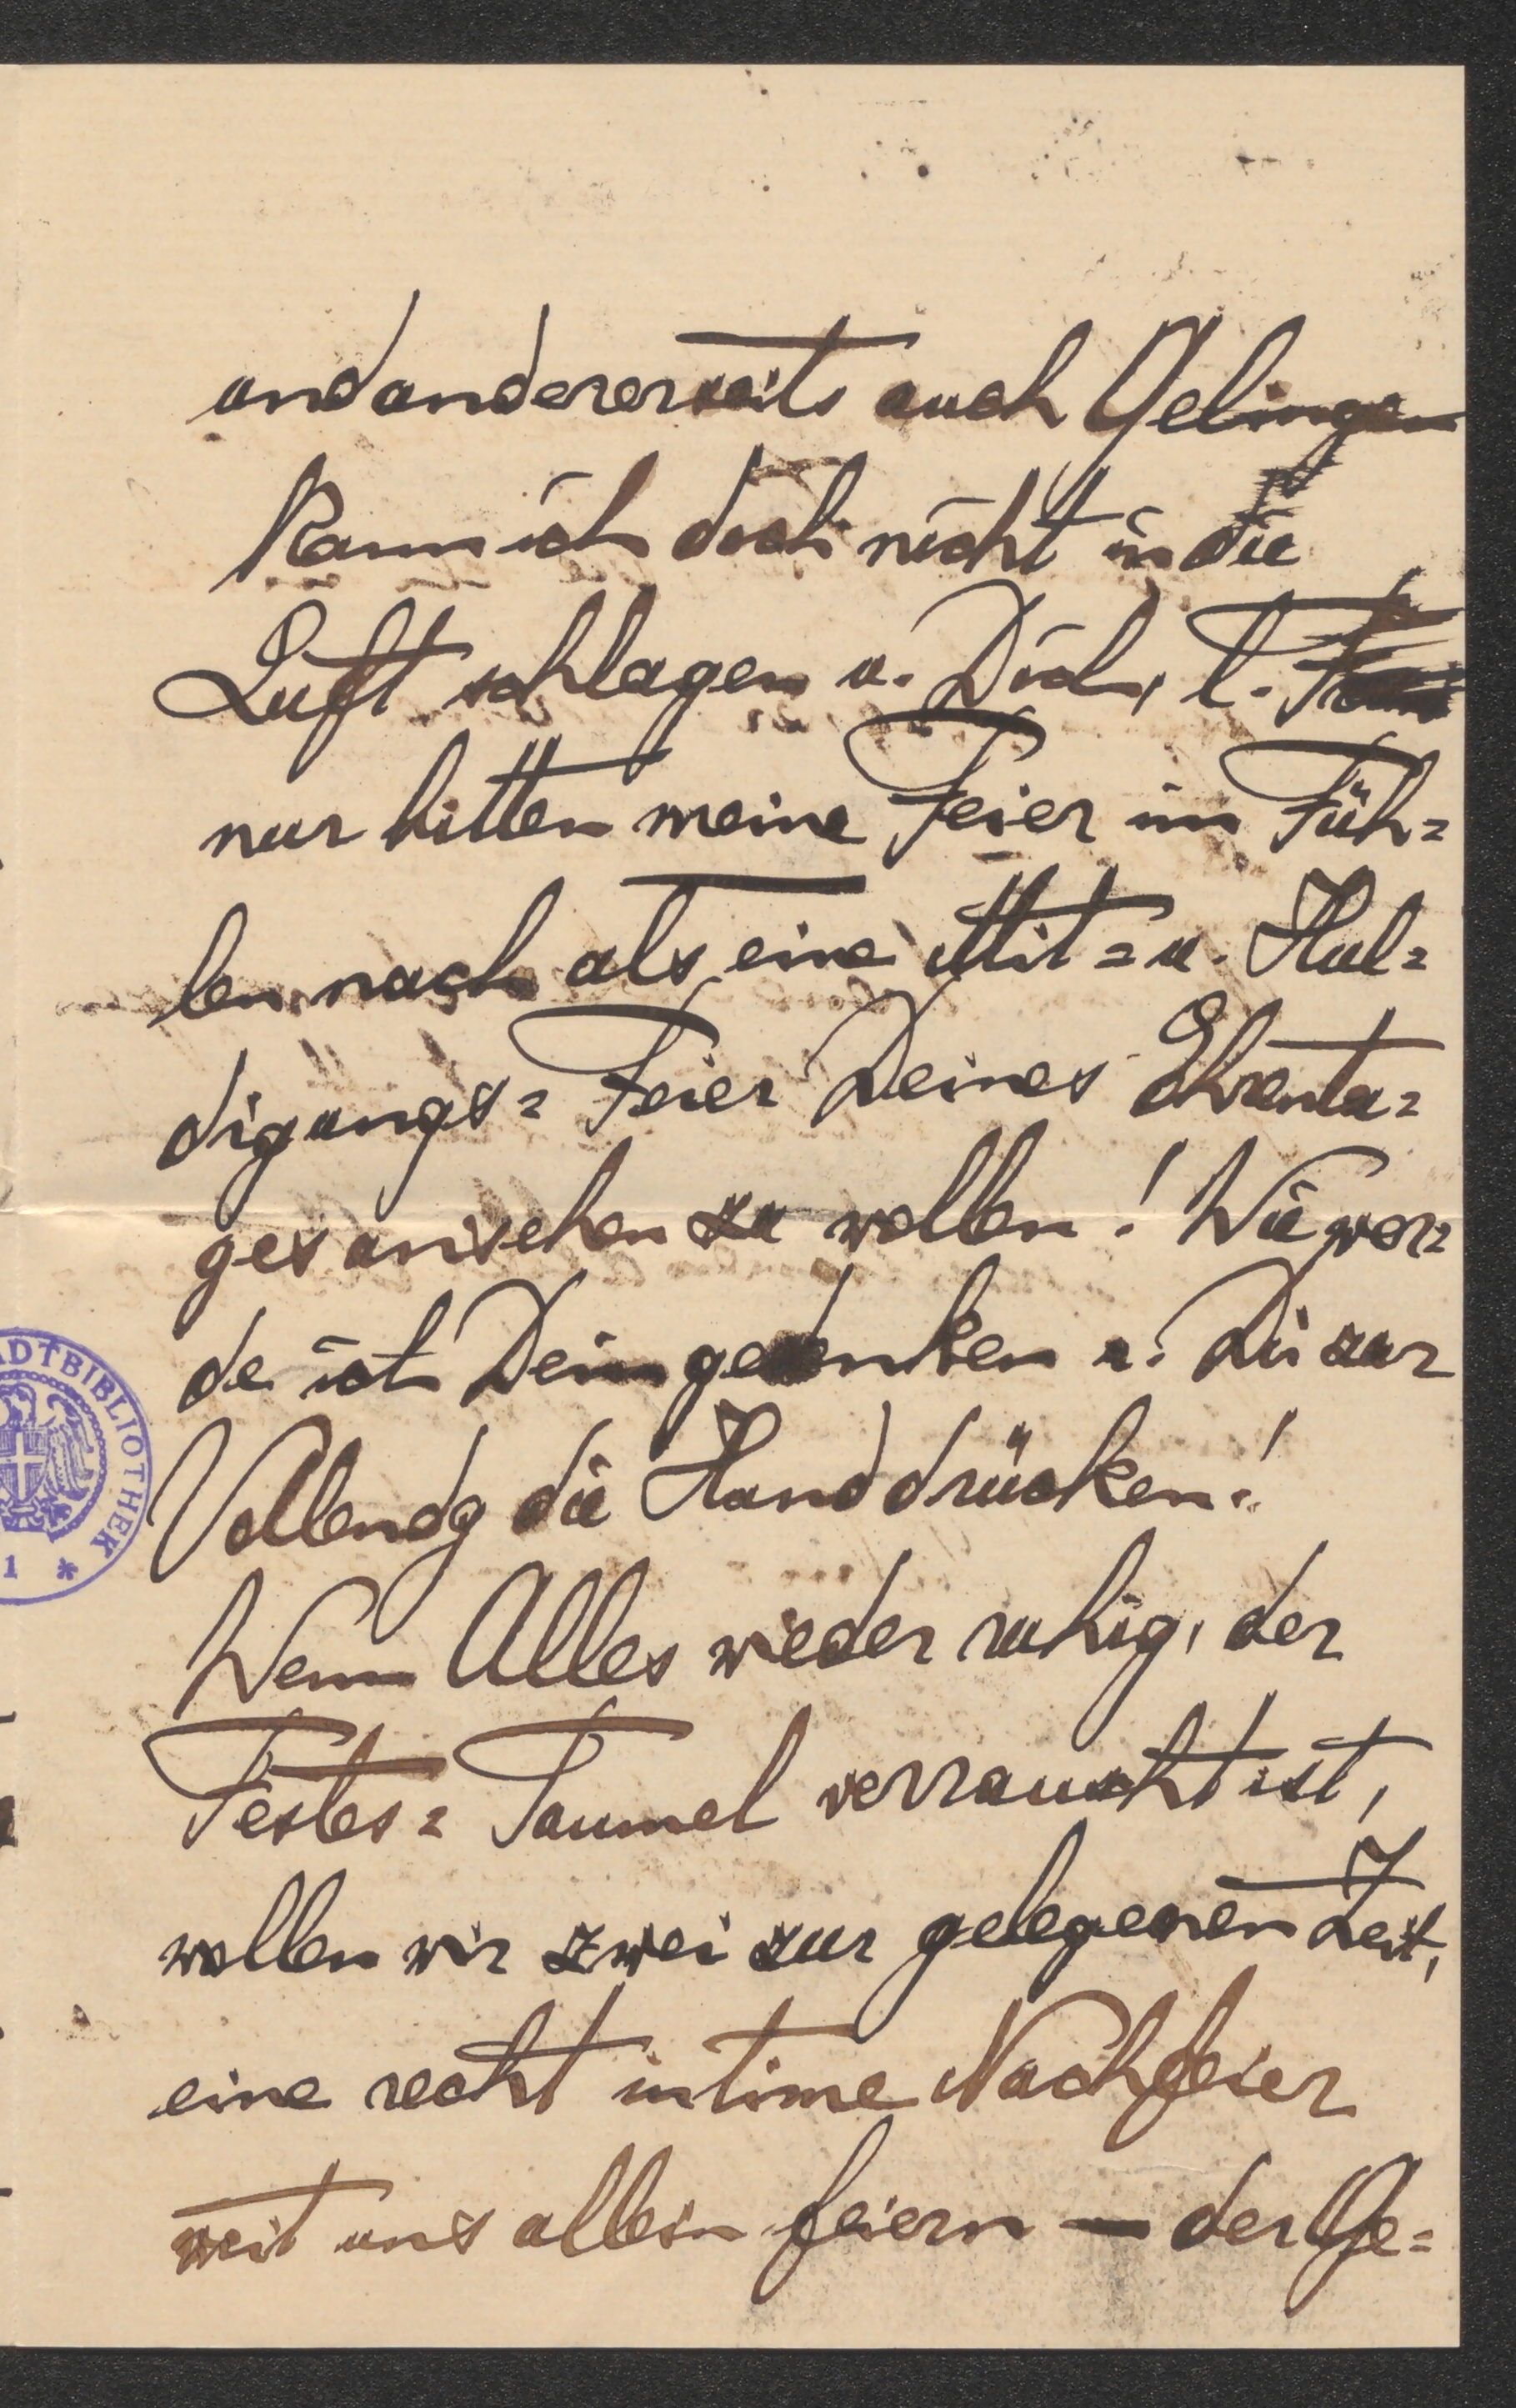 und andererseits auch Gelingen
kann ich doch nicht in die
Luft schlagen u. Dich, l.
nur bitten meine Feier im Füh=
len nach als eine Mit= u. Hul=
digungs= Feier Deines Ehrenta=
ges ansehen zu wollen! Wie wer=
de ich Dein gedenken u. Dir zur
Vollendg die Hand drücken!
Wenn Alles wieder ruhig, der
Festes= Taumel verrauscht ist,
wollen wir zwei zur gelegenen Zeit,
eine recht intime Nachfeier
weit uns allein feiern — der Ge=
ADTBIBLIOTHEK
1 *